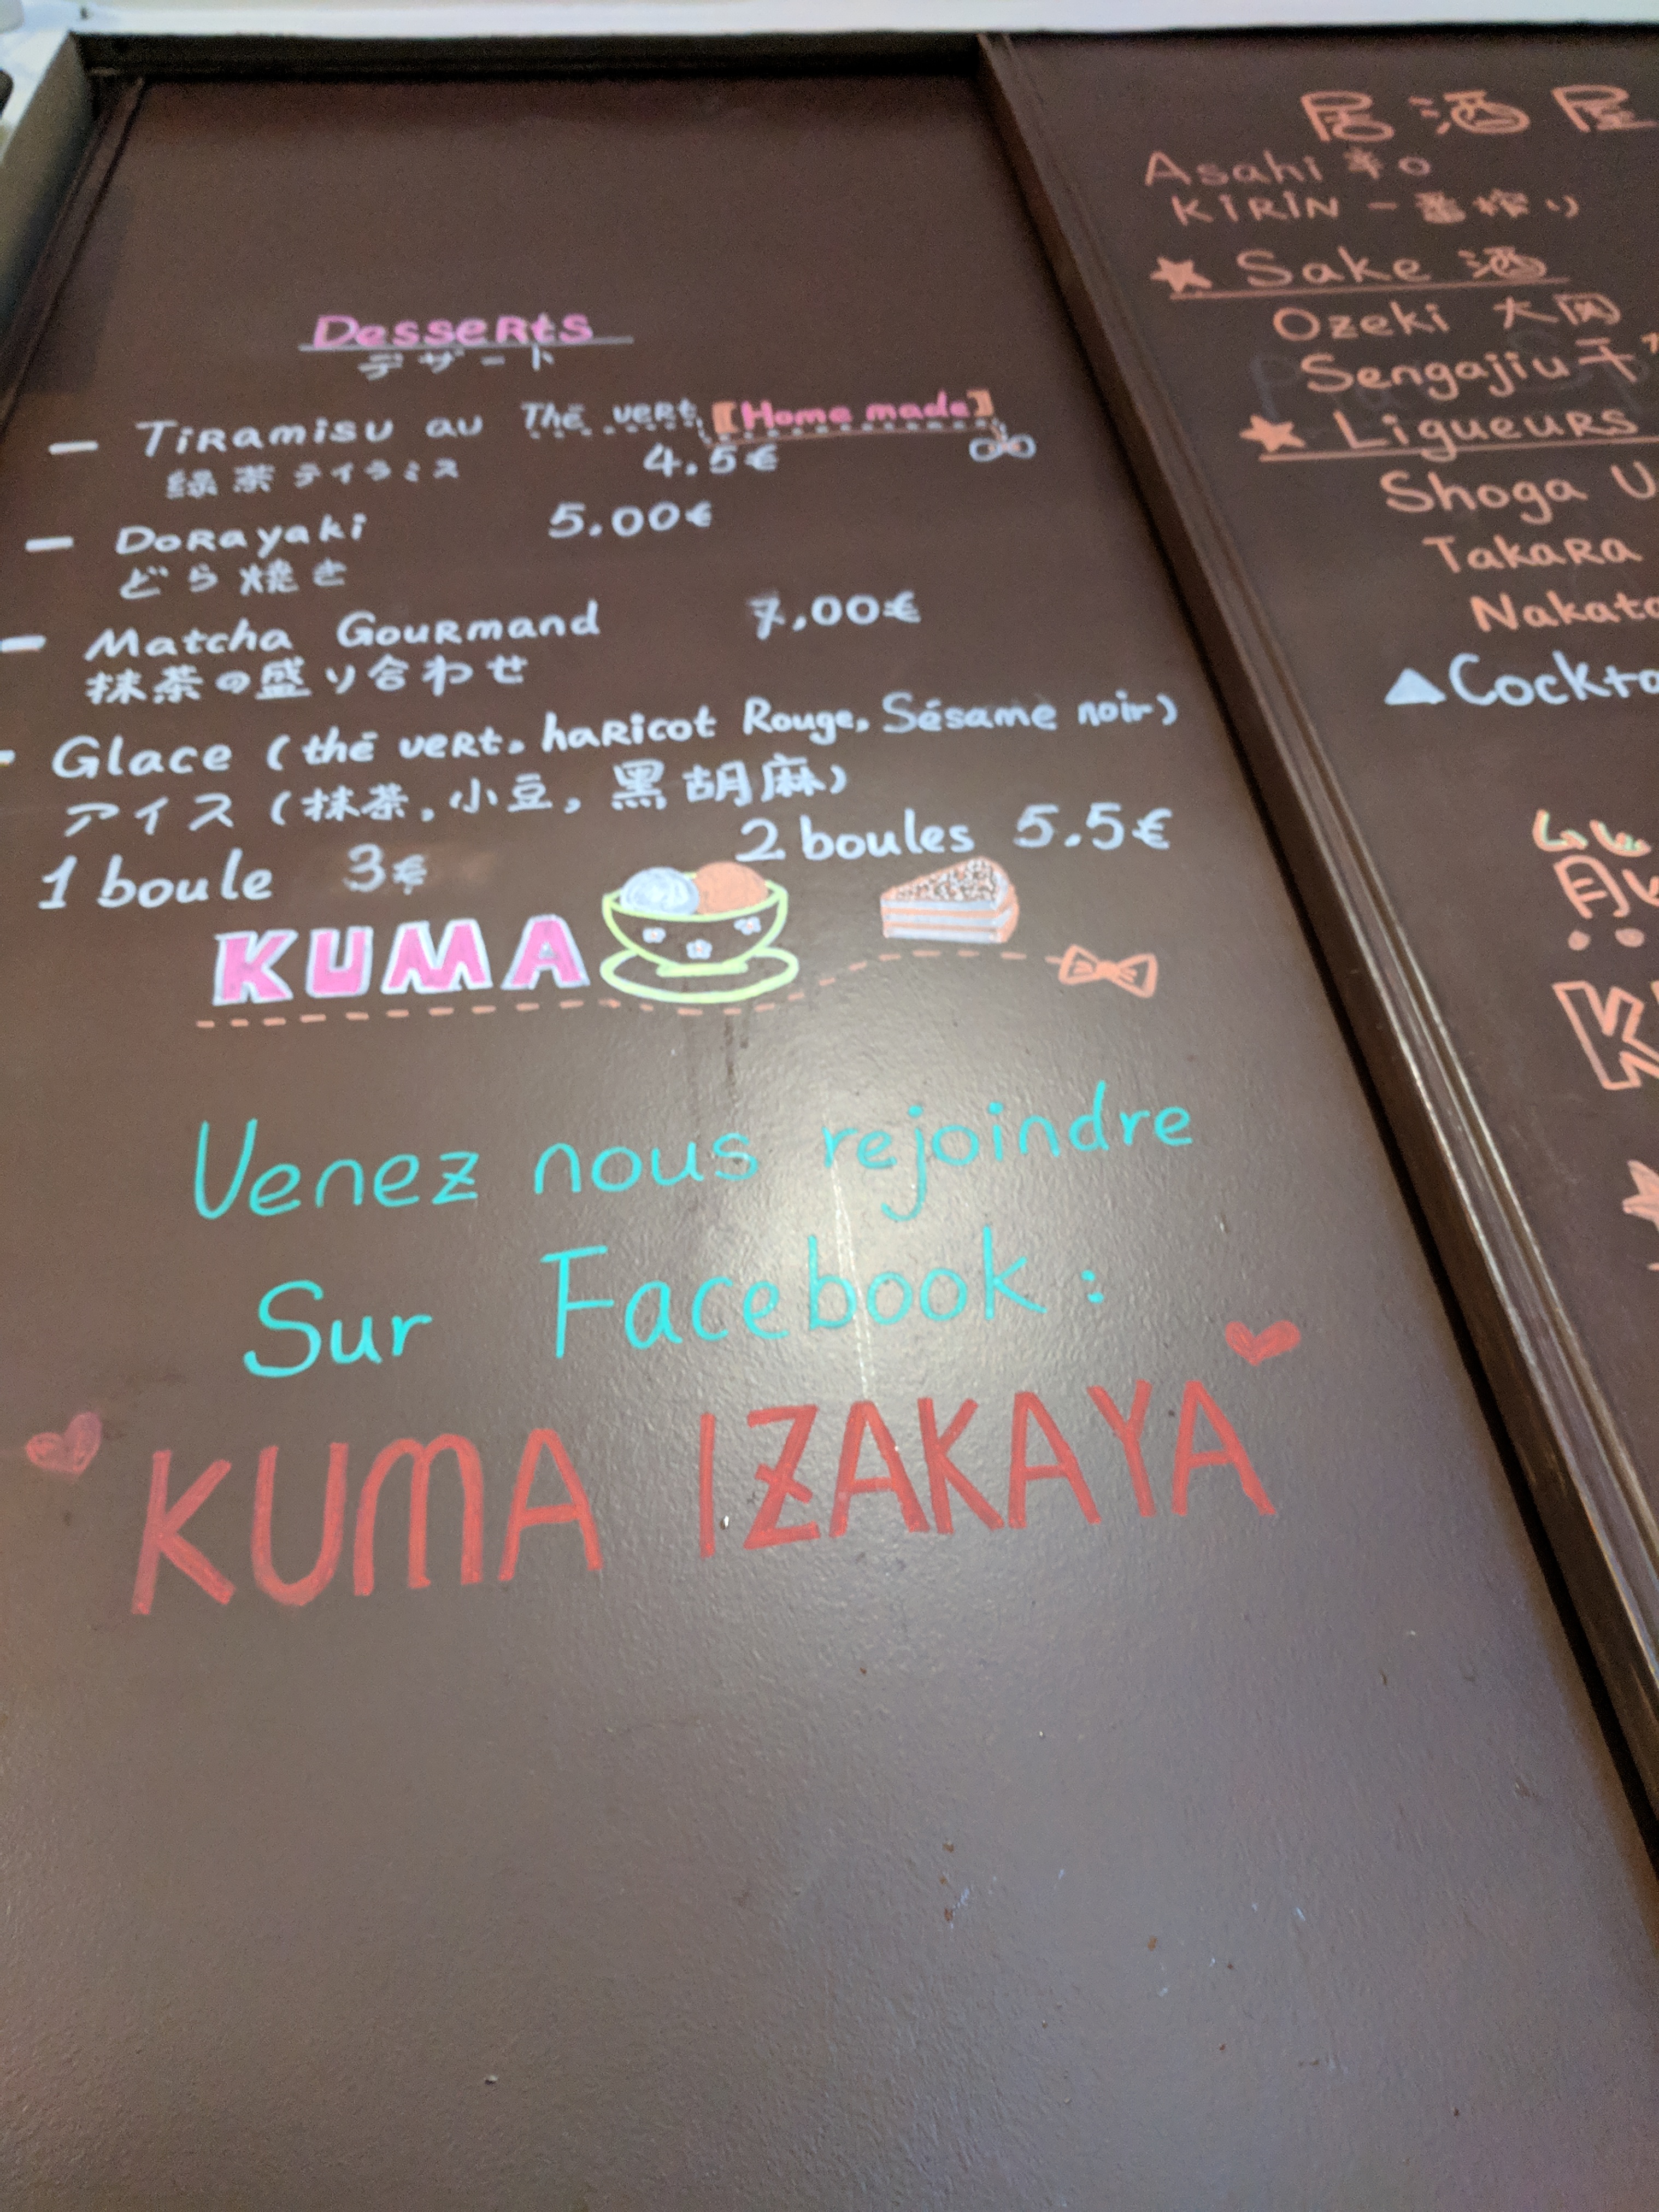 Desserts
デザート
- Tiramisu au Thé vert [Home made]
緑茶ティラミス 4.5€
- Dorayaki 5.00€
どら焼き
- Matcha Gourmand 7,00€
抹茶の盛り合わせ
- Glace (thé vert, haricot Rouge, Sésame noir)
アイス (抹茶, 小豆, 黒胡麻)
1 boule 3€ 2 boules 5.5€
KUMA
Venez nous rejoindre
Sur Facebook :
KUMA IZAKAYA
居酒屋
Asahi 辛口
KIRIN 一番搾り
★ Sake 酒
Ozeki 大関
Sengajiu 千
★ Liqueurs
Shoga U
Takara
Nakato
▲Cockta
K